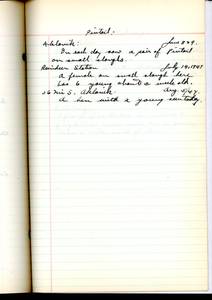 Pintail:
Aklavik: June 8 & 9.
On each day saw a pair of Pintail
on small sloughs.
Reindeer Station July 14, 1947
A female on small slough here
has 6 young about a week old.
26 mi S. Aklavik: Aug. 5/47.
A hen with 2 young seen today.